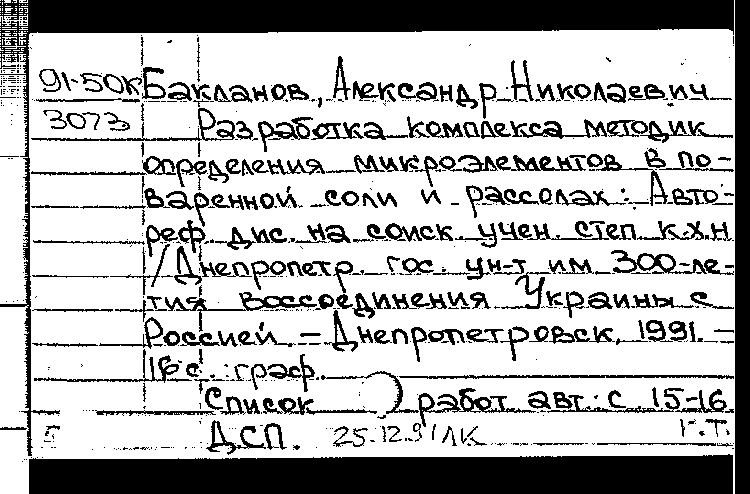 91-50к Бакланов, Александр Николаевич
3073 Разработка комплекса методик
определения микроэлементов в по-
варенной соли и рассолах: Авто-
реф. дис. на соиск. учен. степ. к.х.н
/ Днепропетр. гос. ун-т им 300-ле-
тия воссоединения Украины с
Россией. – Днепропетровск, 1991. –
16 с. : граф.
Список работ авт.: с 15-16
Д.С.П. 25.12.91 ЛК Г.Т.